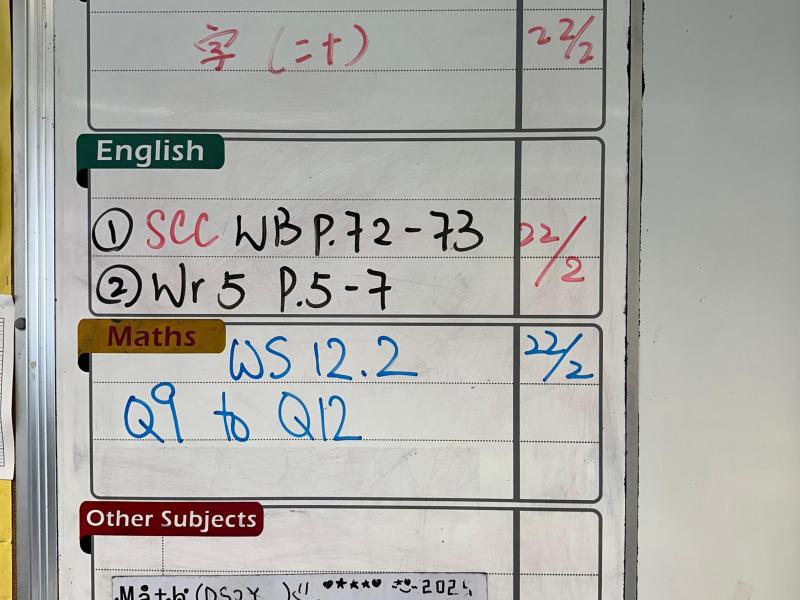 字 (二十) 22/2
English
① SCC WB P.72-73 22/2
② Wr 5 P.5-7
Maths
WS 12.2 22/2
Q9 to Q12
Other Subjects
Math